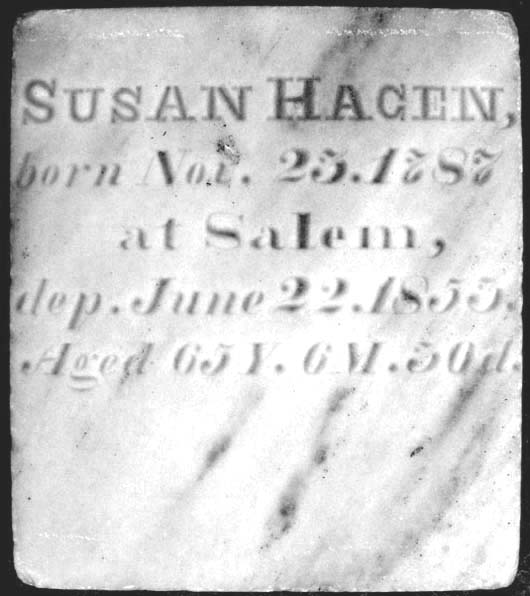 SUSAN HAGEN,
born Nov. 23. 1787
at Salem,
dep. June 22. 1853.
Aged 65 Y. 6 M. 30 d.